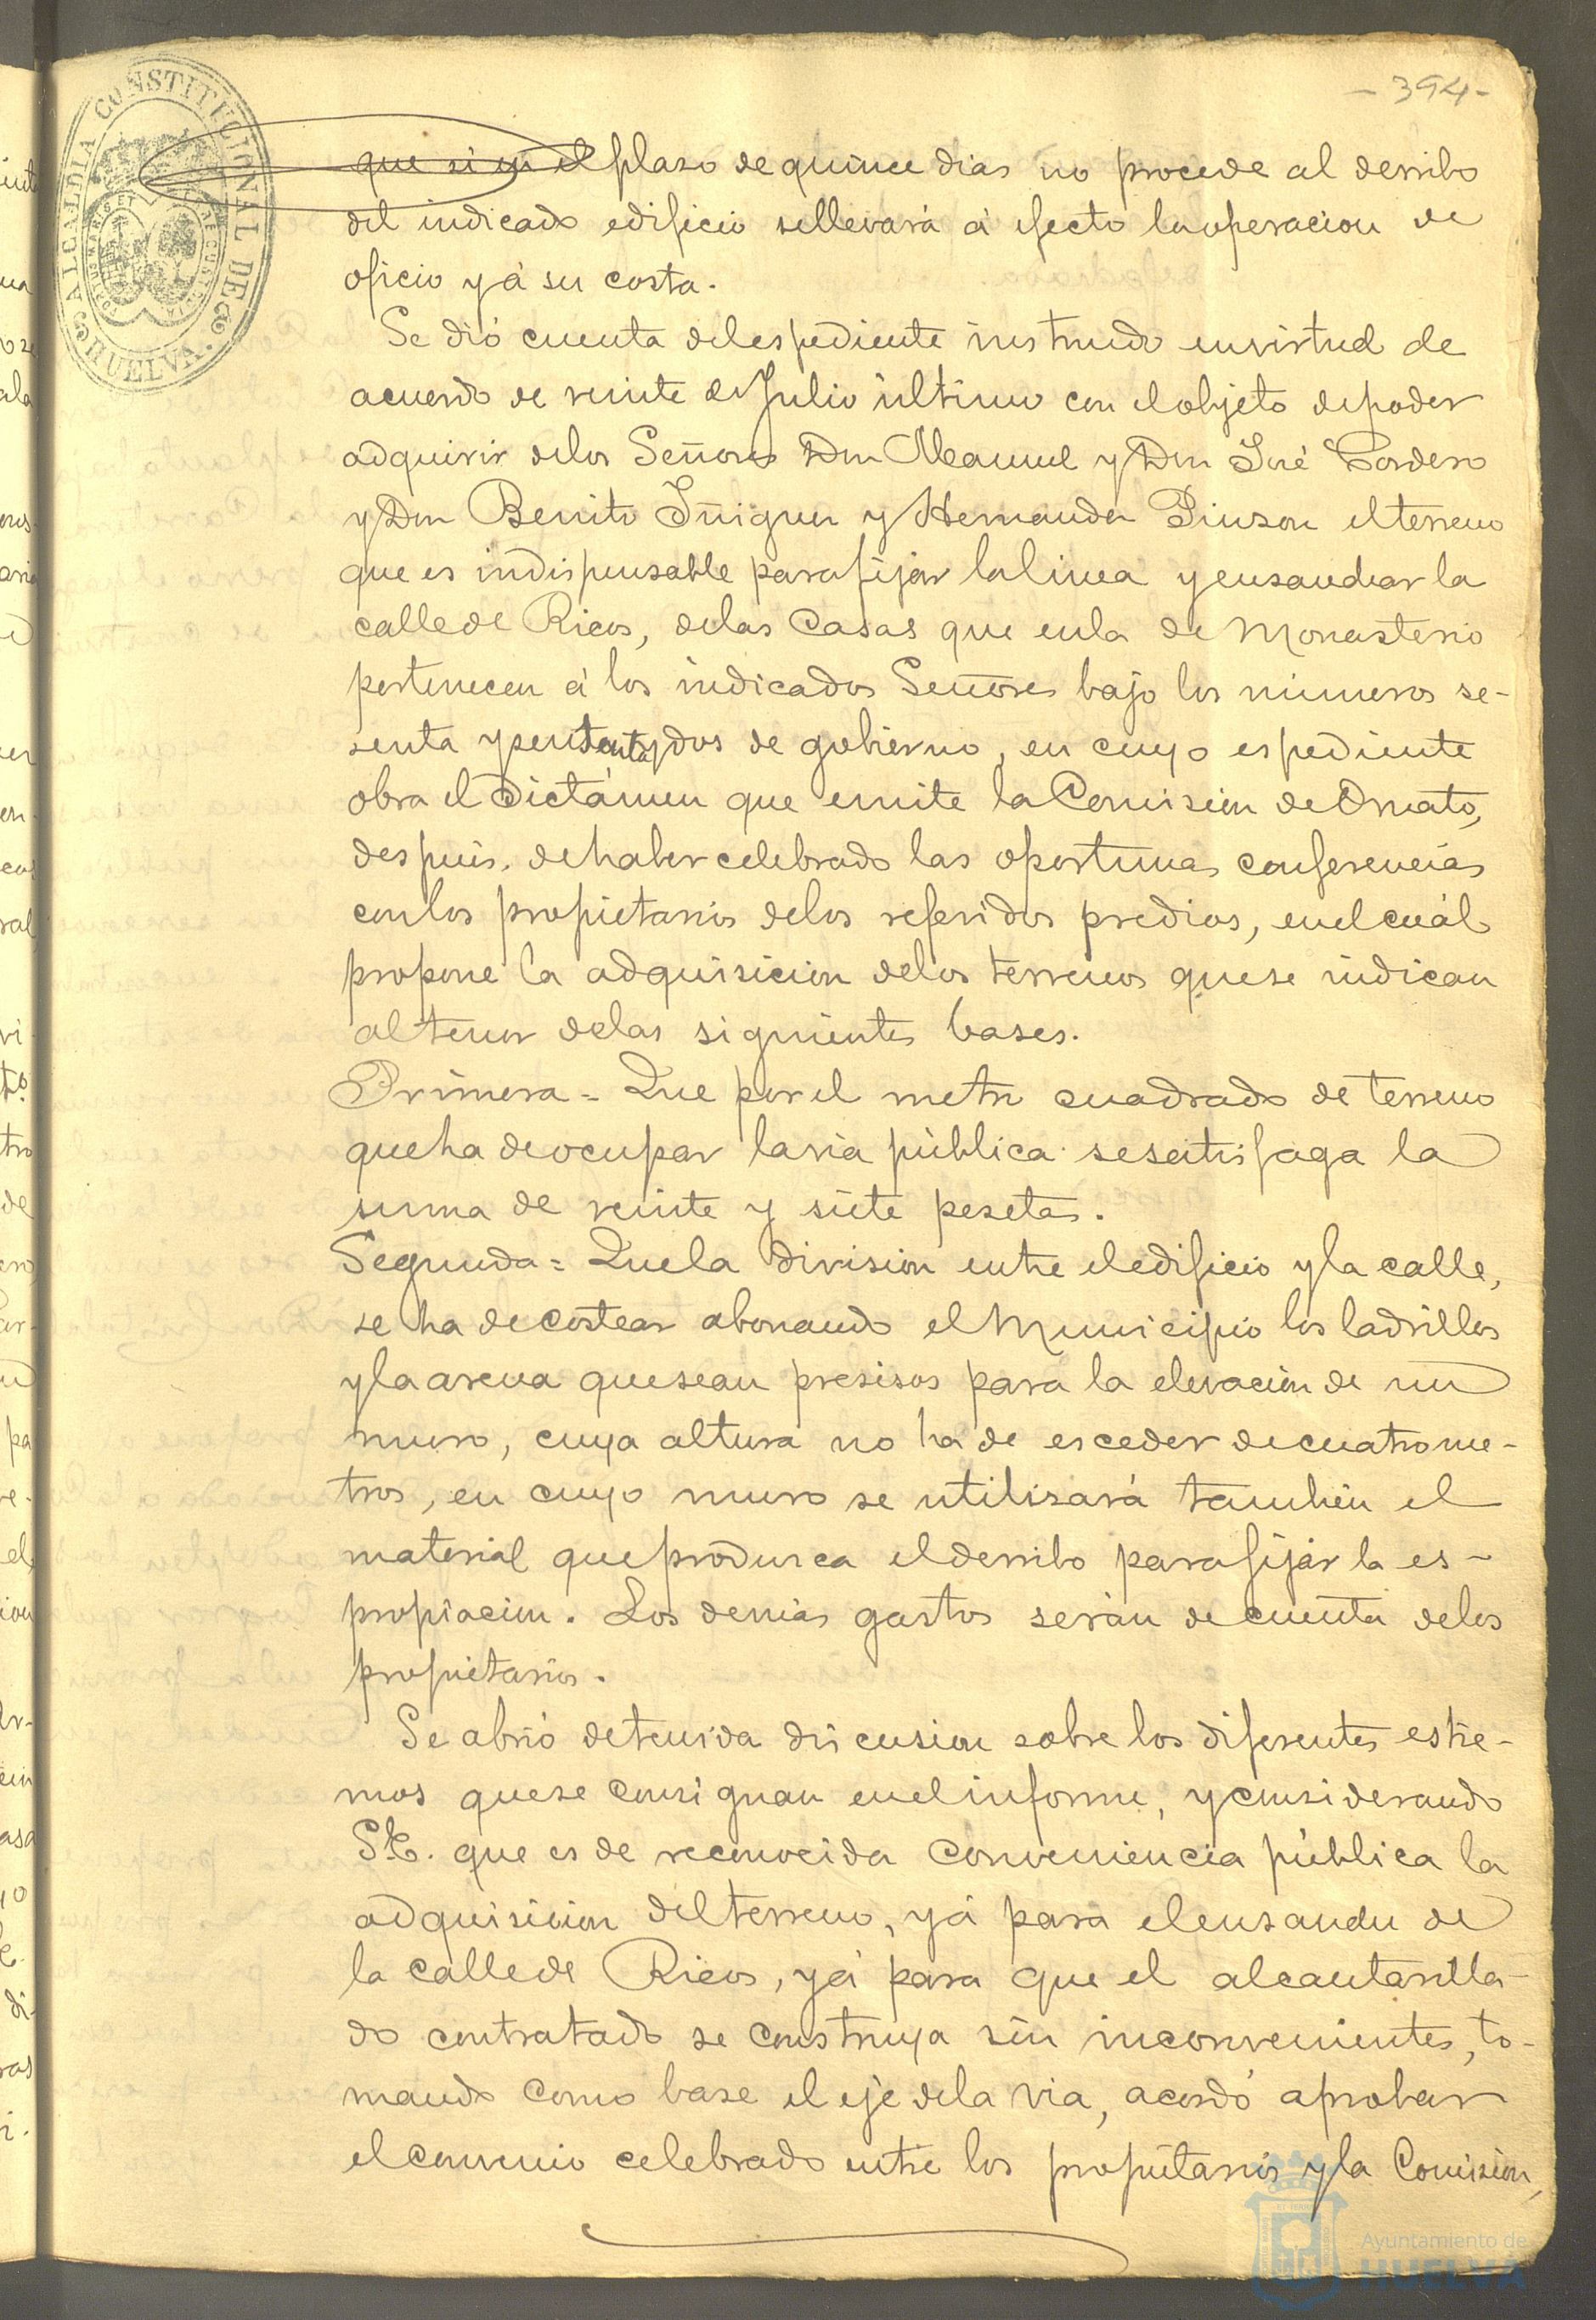 - 394 -
ALCALDIA CONSTITUCIONAL DE HUELVA.
que si en el plaso de quince dias no procede al derribo
del indicado edificio se llevará á efecto la operacion de
oficio y á su costa.
Se dió cuenta del espediente instruido en virtud de
acuerdo de veinte de Julio último con el objeto de poder
adquirir de los Señores Don Manuel y Don José Cordero
y Don Benito Iñiguez y Hernandez Pinzon el terreno
que es indispensable para fijar la linea y ensanchar la
calle de Ricos, de las Casas que en la de Monasterio
pertenecen á los indicados Señores bajo los números se-
senta y sesenta y dos de gobierno, en cuyo espediente
obra el dictámen que emite la Comision de Ornato,
despues de haber celebrado las oportunas conferencias
con los propietarios de los referidos predios, en el cuál
propone la adquisicion de los terrenos que se indican
al tenor de las siguientes bases.
Primera = Que por el metro cuadrado de terreno
que ha de ocupar la via pública se satisfaga la
suma de veinte y siete pesetas.
Segunda = Que la division entre el edificio y la calle,
se ha de costear abonando el Municipio los ladrillos
y la arena que sean presisos para la elevacion de un
muro, cuya altura no ha de esceder de cuatro me-
tros, en cuyo muro se utilisará tambien el
material que produsca el derribo para fijar la es-
propiacion. Los demás gastos serán de cuenta de los
propietarios.
Se abrió detenida discusion sobre los diferentes estre-
mos que se consignan en el informe, y considerando
S.E. que es de reconocida conveniencia pública la
adquisicion del terreno, yá para el ensanche de
la calle de Ricos, yá para que el alcantarilla-
do contratado se construya sin inconvenientes, to-
mando como base el eje de la via, acordó aprobar
el convenio celebrado entre los propietarios y la Comision,
Ayuntamiento de
HUELVA